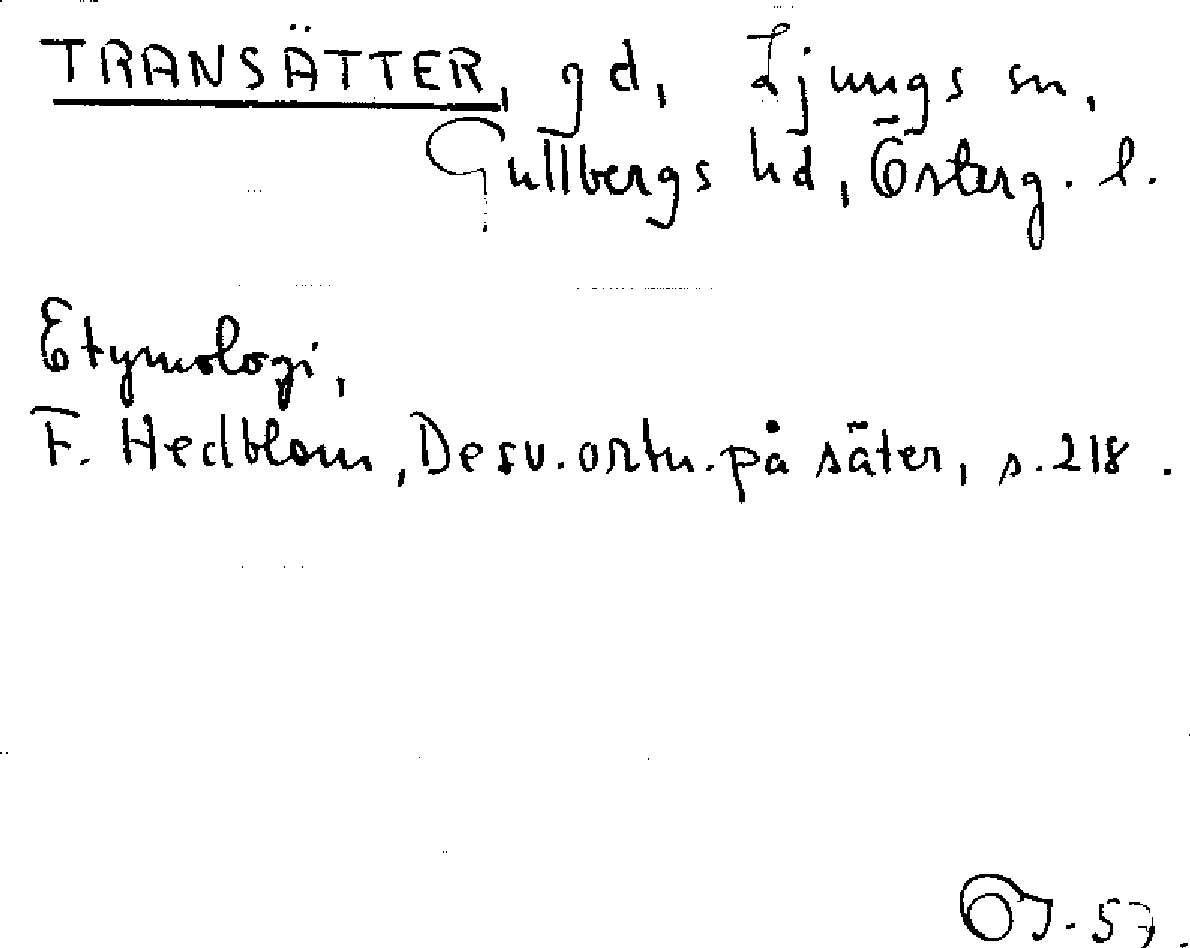 TRANSÄTTER, gd, Ljungs sn,
Gullbergs hd, Österg. l.
Etymologi,
F. Hedblom, De sv. ortn. på säter, s. 218.